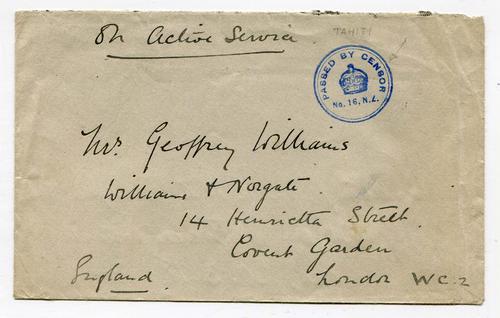 On Active Service.
TAHITI
PASSED BY CENSOR
No. 16, N.Z.
Mr. Geoffrey Williams
Williams & Norgate.
14 Henrietta Street.
Covent Garden
England
London W.C.2